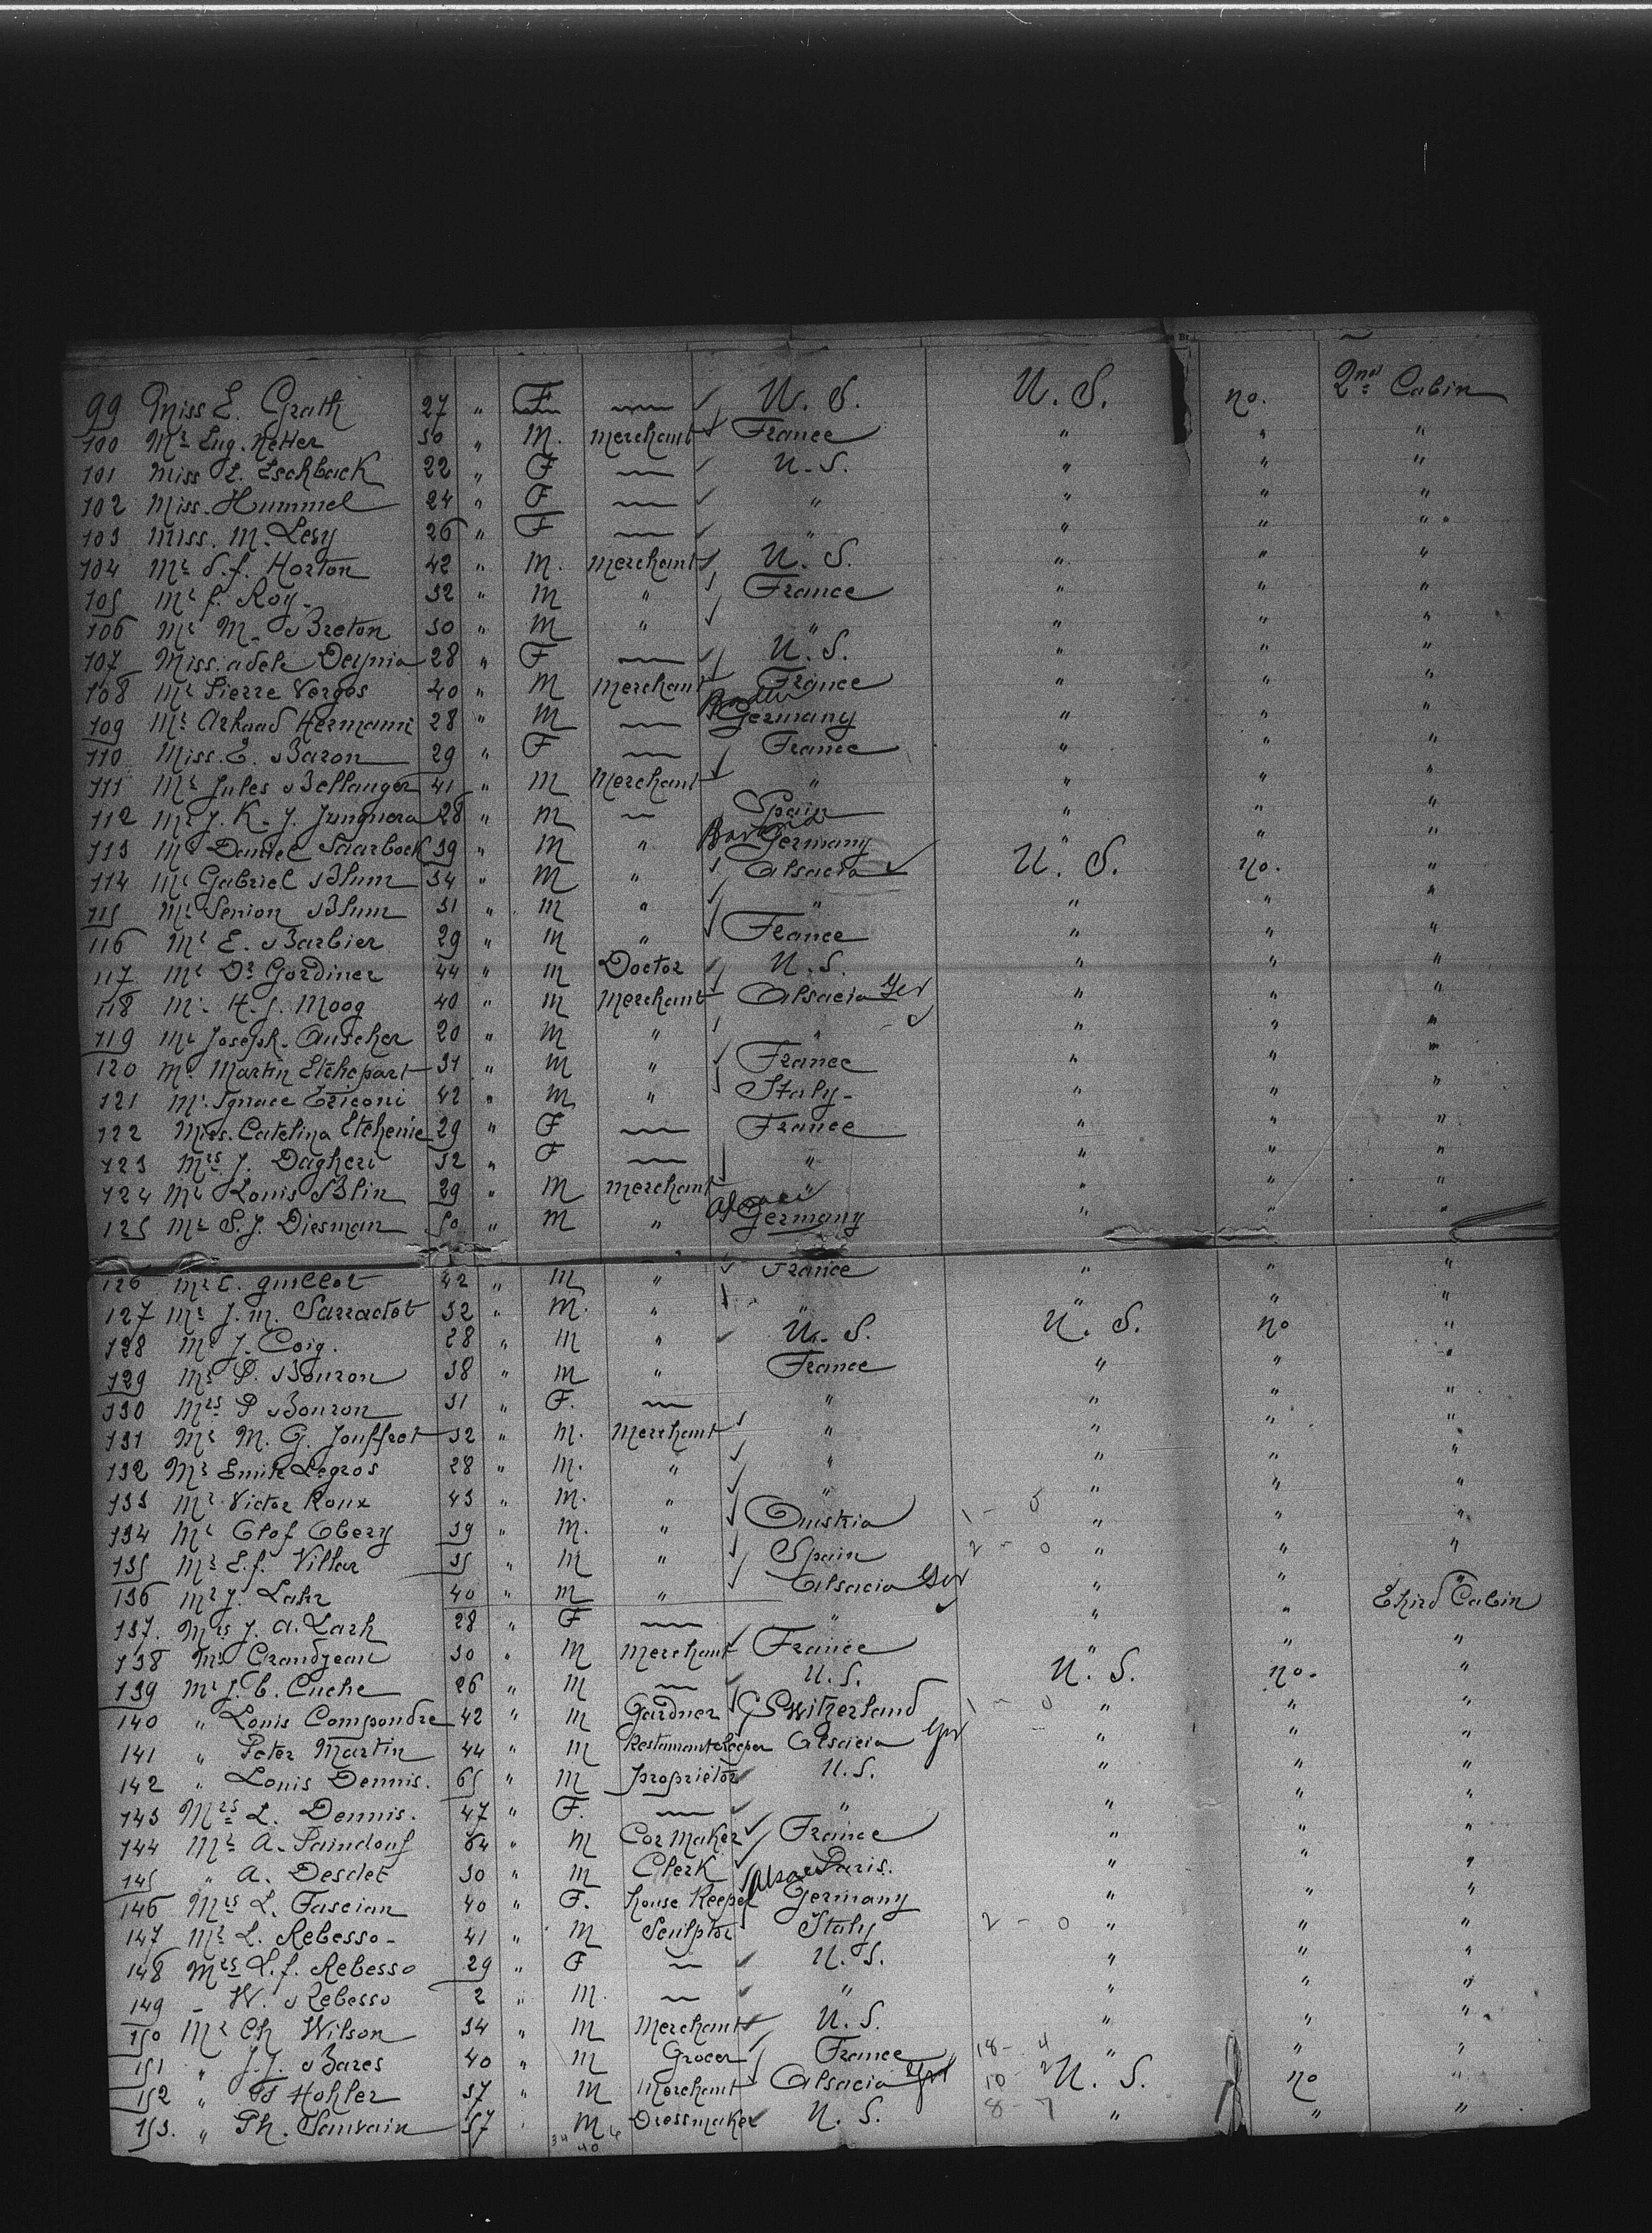 99 Miss E. Grath 27 " F — U. S. U. S. no. 2nd Cabin
100 Mr Eug. Netter 30 " M. merchant France " " "
101 Miss L. Eschback 22 " F — U. S. " " "
102 Miss Hummel 24 " F — " " " "
103 Miss. M. Levy 26 " F — " " " "
104 Mr S. f. Horton 42 " M. Merchant U. S. " " "
105 Mr f. Roy 32 " M " France " " "
106 Mr M. Breton 30 " M " " " " "
107 Miss. adele Deynia 28 " F — U. S. " " "
108 Mr Pierre Verges 40 " M Merchant France " " "
109 Mr Arhaud Hermann 28 " M — Germany " " "
110 Miss. E. Baron 29 " F — France " " "
111 Mr Jules Bellanger 41 " M Merchant " " " "
112 Mr J. K. J. Junguera 28 " M — Spain " " "
113 Mr Daniel Saarbock 39 " M " Germany " " "
114 Mr Gabriel Blum 34 " M " Alsacia U. S. no. "
115 Mr Senion Blum 31 " M " " " " "
116 Mr E. Barbier 29 " M " France " " "
117 Mr Dr Gordiner 44 " M Doctor U. S. " " "
118 Mr H. J. Moog 40 " M Merchant Alsacia Ger " " "
119 Mr Joseph Auscher 20 " M " " " " "
120 Mr Martin Etchepart 31 " M " France " " "
121 Mr Ignace Ericoni 42 " M " Italy " " "
122 Miss. Catelina Etchenie 29 " F — France " " "
123 Mrs J. Dagheri 32 " F — " " " "
124 Mr Louis Blin 29 " M merchant " " " "
125 Mr S. J. Diesman 50 " M " Germany " " "
126 Mr E. Guillot 42 " M " France " " "
127 Mr J. M. Sarractot 32 " M. " " " " "
128 Mr J. Coig. 28 " M " U. S. U. S. no "
129 Mr P. Bouron 38 " M " France " " "
130 Mrs P Bouron 31 " F. — " " " "
131 Mr M. G. Jouffrot 32 " M. Merchant " " " "
132 Mr Emile Legros 28 " M. " " " " "
133 Mr Victor Roux 43 " M. " " " " "
134 Mr Olof Obery 39 " M. " Austria 1 - 0 " " "
135 Mr E. f. Viller 35 " M " Spain 2 - 0 " " "
136 Mr J. Lahr 40 " M " Alsacia Ger " " "
137. Mrs J. A. Larh 28 " F — " " " Third Cabin
138 Mr Grandjean 30 " M Merchant France " " "
139 Mr J. C. Cuche 26 " M — U. S. U. S. no. "
140 " Louis Compondre 42 " M Gardner Switzerland 1 - 0 " " "
141 " Peter Martin 44 " M Restaurantkeeper Alsacia Ger " " "
142 " Louis Dennis. 65 " M proprietor U. S. " " "
143 Mrs L. Dennis. 47 " F. — " " " "
144 Mr A. Paindouf 64 " M Cor Maker France " " "
145 " A. Desclet 30 " M Clerk Paris. " " "
146 Mrs L. Fascian 40 " F. house Keeper Germany " " "
147 Mr L. Rebesso 41 " M Sculptor Italy 2 - 0 " " "
148 Mrs L. f. Rebesso 29 " F — U. S. " " "
149 – W. Rebesso 2 " M. — " " " "
150 Mr Ch Wilson 34 " M Merchant U. S. " " "
151 " J. J. Bares 40 " M Grocer France 18 - 4 " " "
152 " Hohler 37 " M Merchant Alsacia 10 - 2 U. S. no "
153. " Ph. Sauvain 57 " M Dressmaker U. S. 8 - 7 " " "
34 40 6